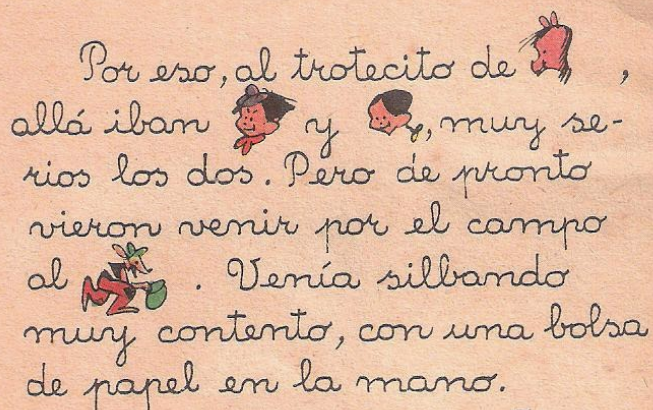 Por eso, al trotecito de ,
allá iban y , muy se-
rios los dos. Pero de pronto
vieron venir por el campo
al . Venía silbando
muy contento, con una bolsa
de papel en la mano.